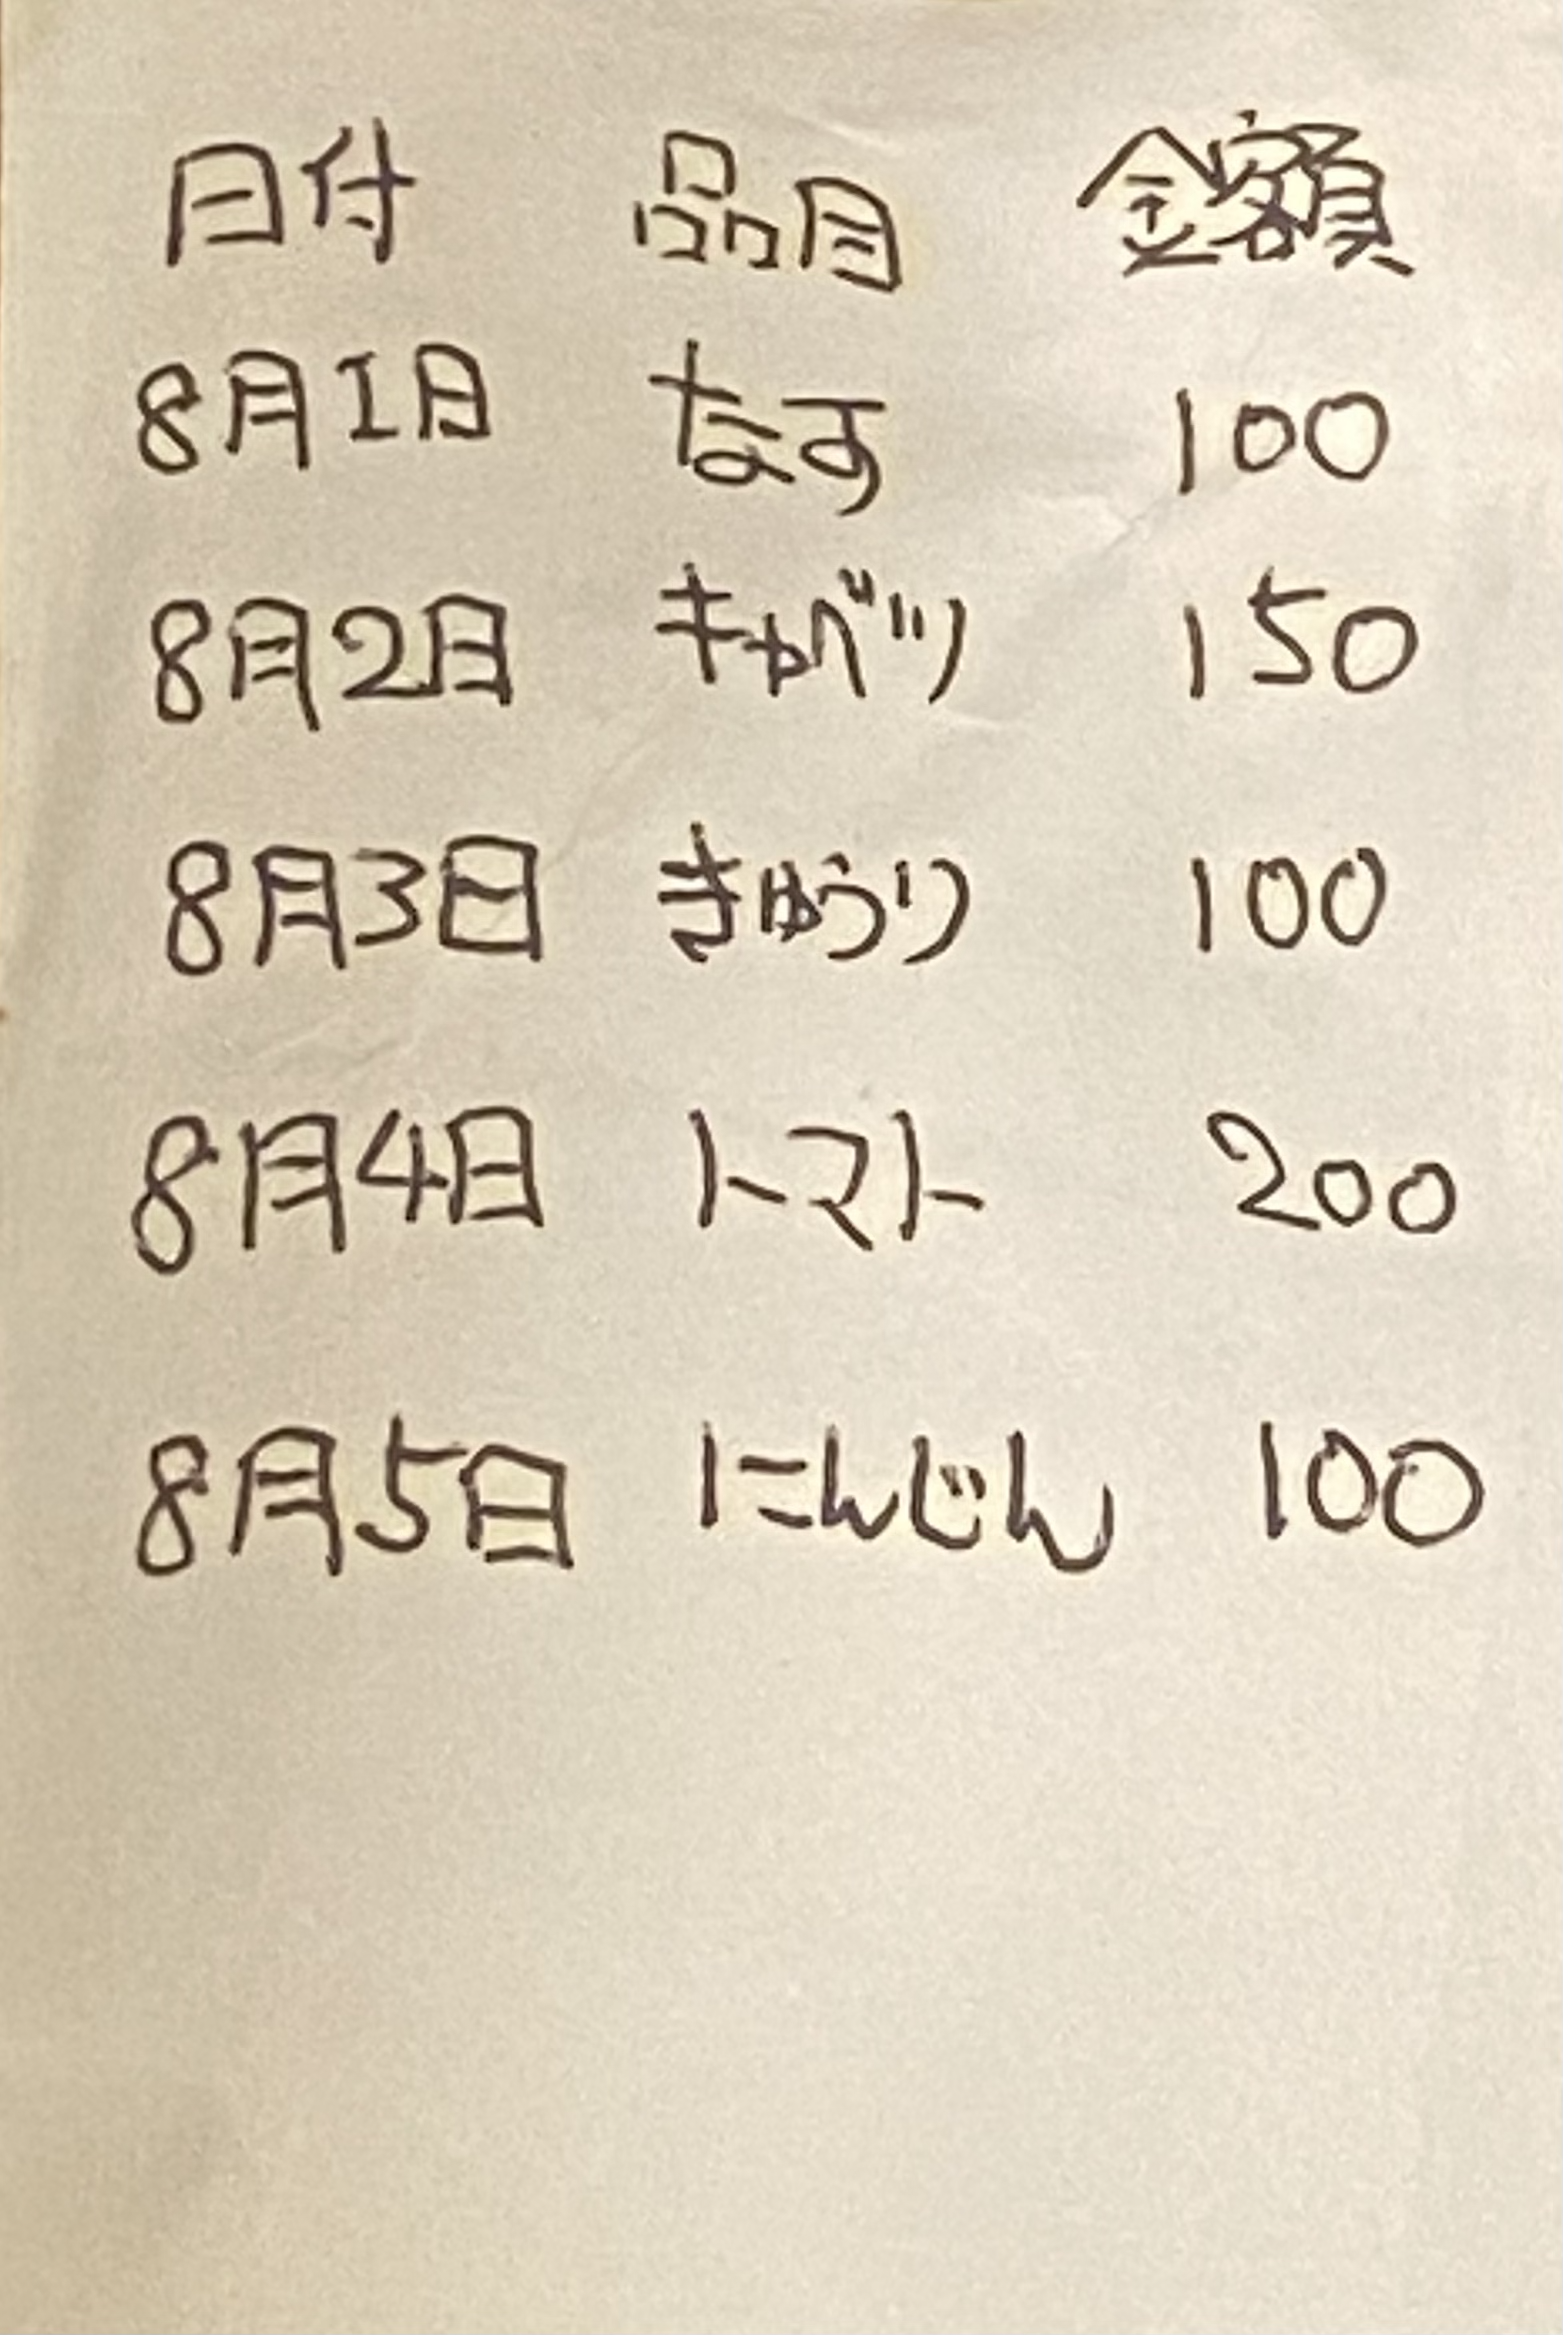 日付 品目 金額
8月1日 なす 100
8月2日 キャベツ 150
8月3日 きゅうり 100
8月4日 トマト 200
8月5日 にんじん 100